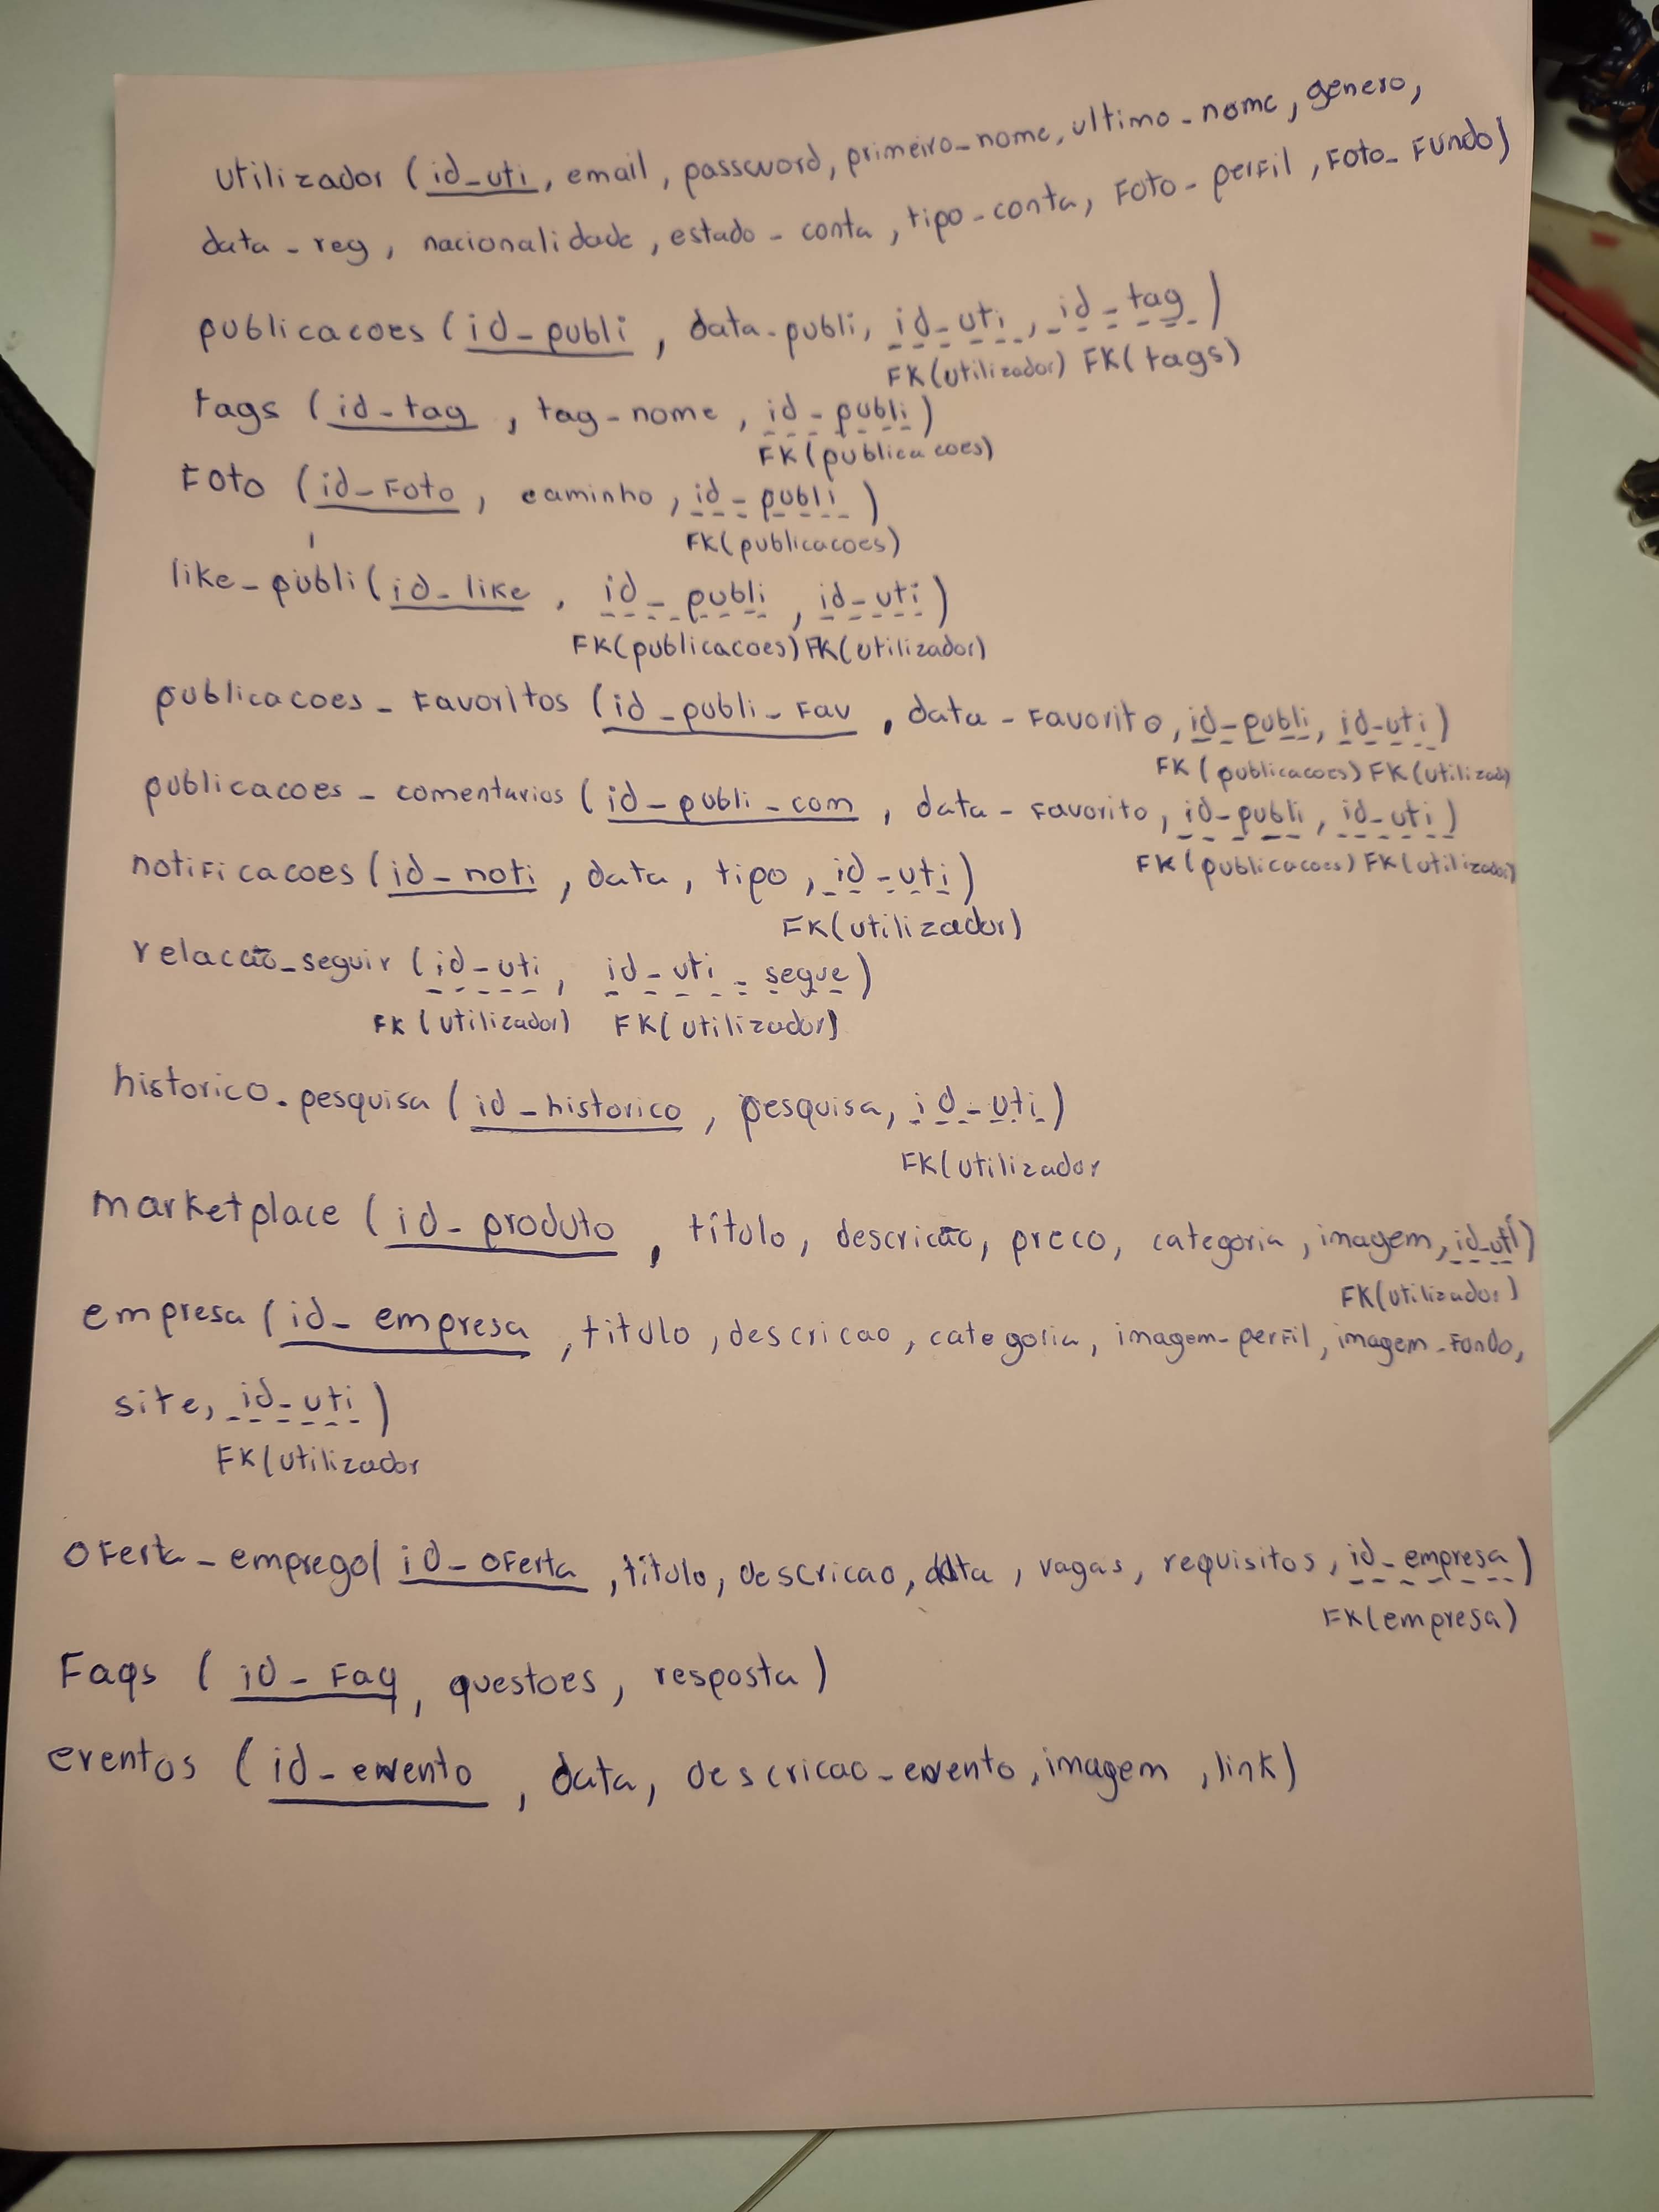 utilizador (id_uti, email, password, primeiro_nome, ultimo_nome, genero,
data_reg, nacionalidade, estado_conta, tipo_conta, Foto_perfil, Foto_Fundo)
publicacoes (id_publi, data_publi, id_uti, id_tag)
FK(utilizador) FK(tags)
tags (id_tag, tag_nome, id_publi)
FK(publicacoes)
Foto (id_Foto, caminho, id_publi)
FK(publicacoes)
like_publi(id_like, id_publi, id_uti)
FK(publicacoes) FK(utilizador)
publicacoes_Favoritos (id_publi_Fav, data_Favorito, id_publi, id_uti)
FK(publicacoes) FK(utilizad
publicacoes_comentarios (id_publi_com, data_Favorito, id_publi, id_uti)
FK(publicacoes) FK(utilizador)
notificacoes (id_noti, data, tipo, id_uti)
FK(utilizador)
relacão_seguir (id_uti, id_uti_segue)
FK(utilizador) FK(utilizador)
historico_pesquisa (id_historico, pesquisa, id_uti)
FK(utilizador
marketplace (id_produto, título, descricão, preco, categoria, imagem, id_uti)
FK(utilizador)
empresa (id_empresa, titulo, descricao, categoria, imagem_perfil, imagem_fundo,
site, id_uti)
FK(utilizador
oferta_emprego( id_oferta, título, descricao, data, vagas, requisitos, id_empresa)
FK(empresa)
Faqs (id_Faq, questoes, resposta)
eventos (id_evento, data, descricao_evento, imagem, link)